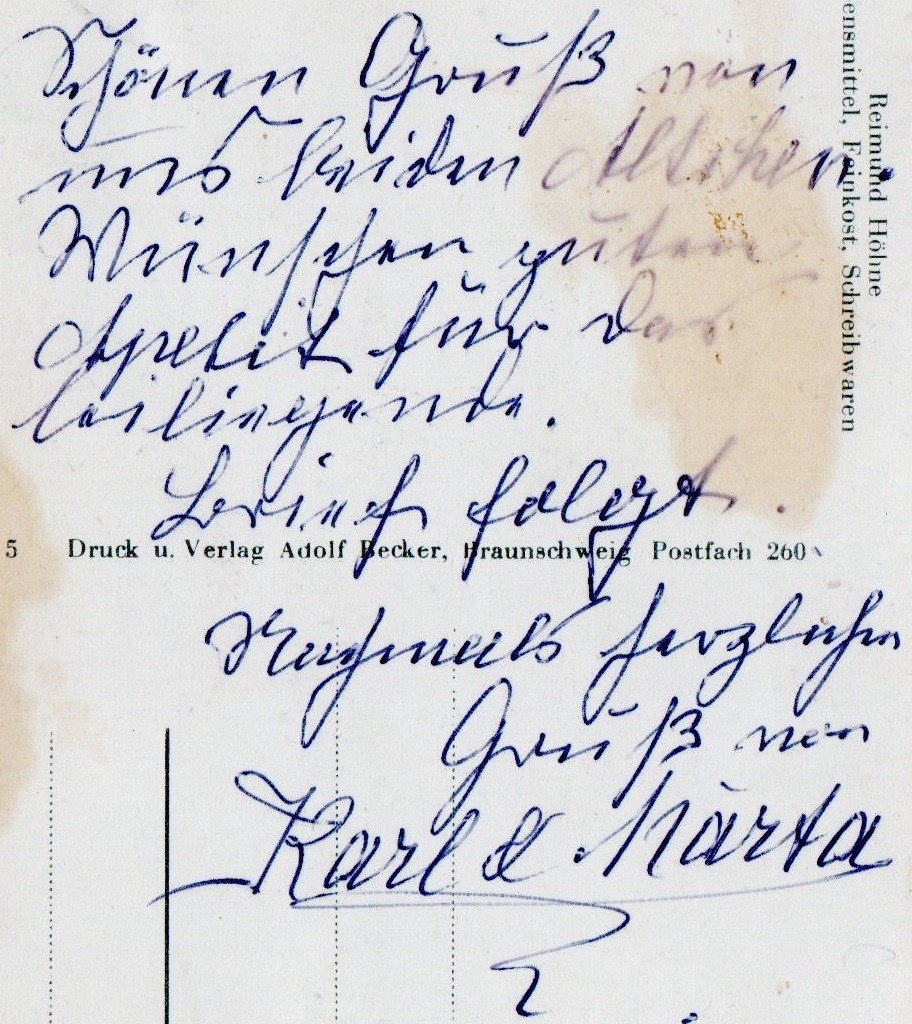 Schönen Gruß von
uns beiden Altchen.
Wünschen guten
Apetit für das
beiliegende.
Brief folgt.
5 Druck u. Verlag Adolf Becker, Braunschweig Postfach 260
Nachmals herzlichen
Gruß von
Karl & Marta
Reimund Höhne
ensmittel, Feinkost, Schreibwaren